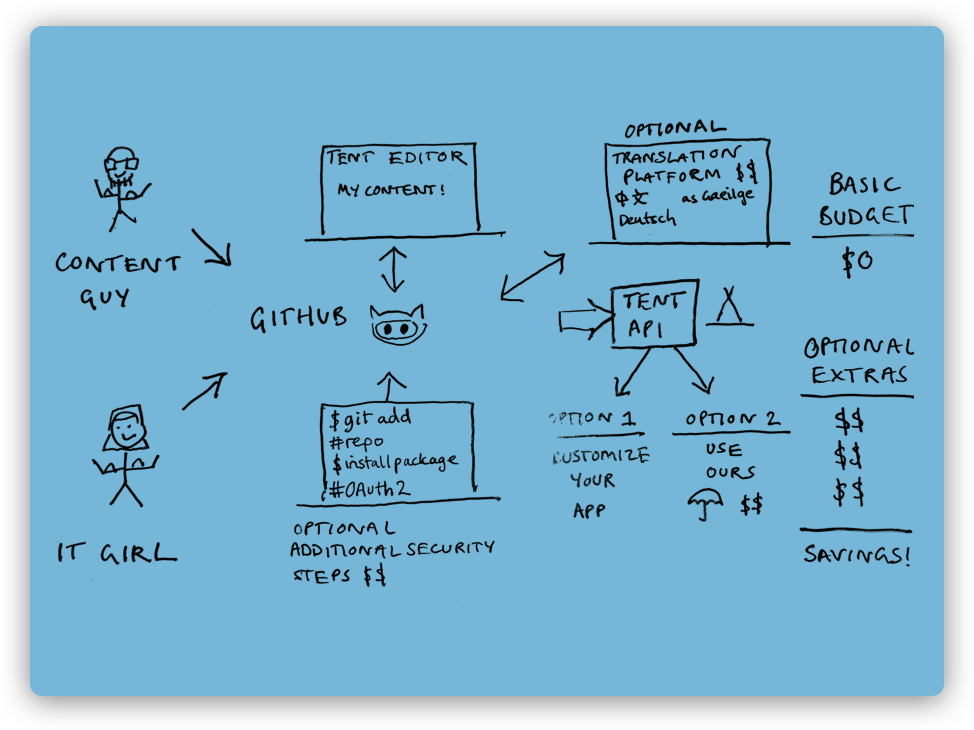 CONTENT
GUY
IT GIRL
TENT EDITOR
MY CONTENT!
GITHUB
$ git add
#repo
$ install package
#OAuth2
OPTIONAL
ADDITIONAL SECURITY
STEPS $$
OPTIONAL
TRANSLATION
PLATFORM $$
中文 as Gaeilge
Deutsch
TENT
API
OPTION 1
CUSTOMIZE
YOUR
APP
OPTION 2
USE
OURS
$$
BASIC
BUDGET
$0
OPTIONAL
EXTRAS
$$
$$
$$
SAVINGS!